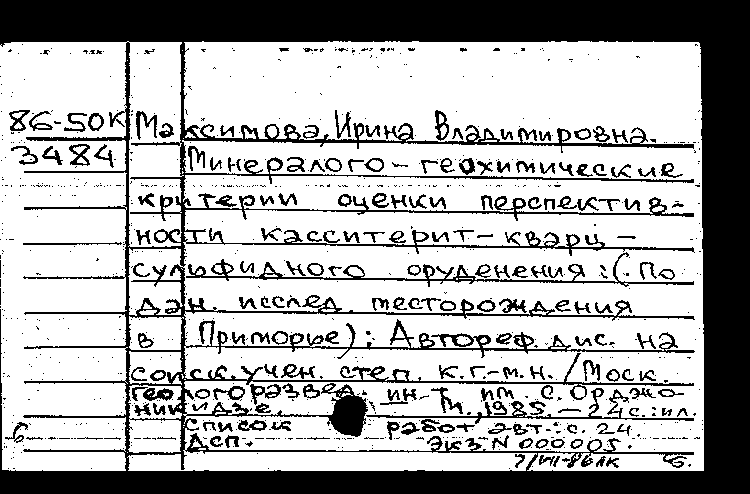 86-50К Максимова, Ирина Владимировна.
3484 Минералого-геохимические
критерии оценки перспектив-
ности касситерит-кварц-
сульфидного оруденения: (По
дан. исслед. месторождения
в Приморье): Автореф. дис. на
соиск. учен. степ. к.г.-м.н. / Моск.
геологоразвед. ин-т им. С. Орджо-
никидзе. М., 1985. - 24 с.: ил.
Список работ авт.: с. 24.
Дсп. Экз. N 000005.
б
7/VII-86